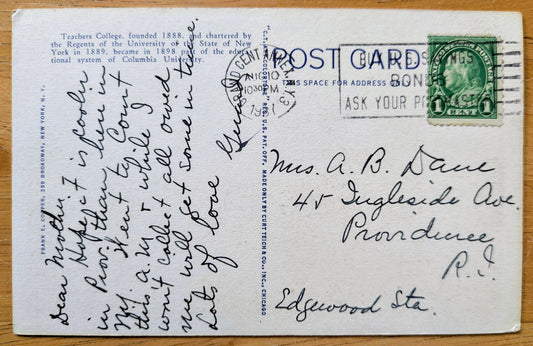 Teachers College, founded 1888, and chartered by
the Regents of the University of the State of New York
in 1889, became in 1898 part of the educational
system of Columbia University.
FRANK E. COOPER, 259 BROADWAY, NEW YORK, N. Y.
Dear Mother
Hope it is cooler
in Prov. than here in
N.Y. Went to Court
this A.M. & while I
won't collect all owed
me will get some in time.
Lots of love
"C.T. ART-COLORTONE" REG. U.S. PAT. OFF. MADE ONLY BY CURT TEICH & CO., INC., CHICAGO
POST CARD
THIS SPACE FOR ADDRESS ONLY
GRAND CENT. ANNEX, N.Y. 3
10
10 30 PM
BUY U.S. SAVINGS
BONDS
ASK YOUR POSTMASTER
1 CENT 1
Mrs. A. B. Dane
45 Ingleside Ave.
Providence
R.I.
Edgewood Sta.